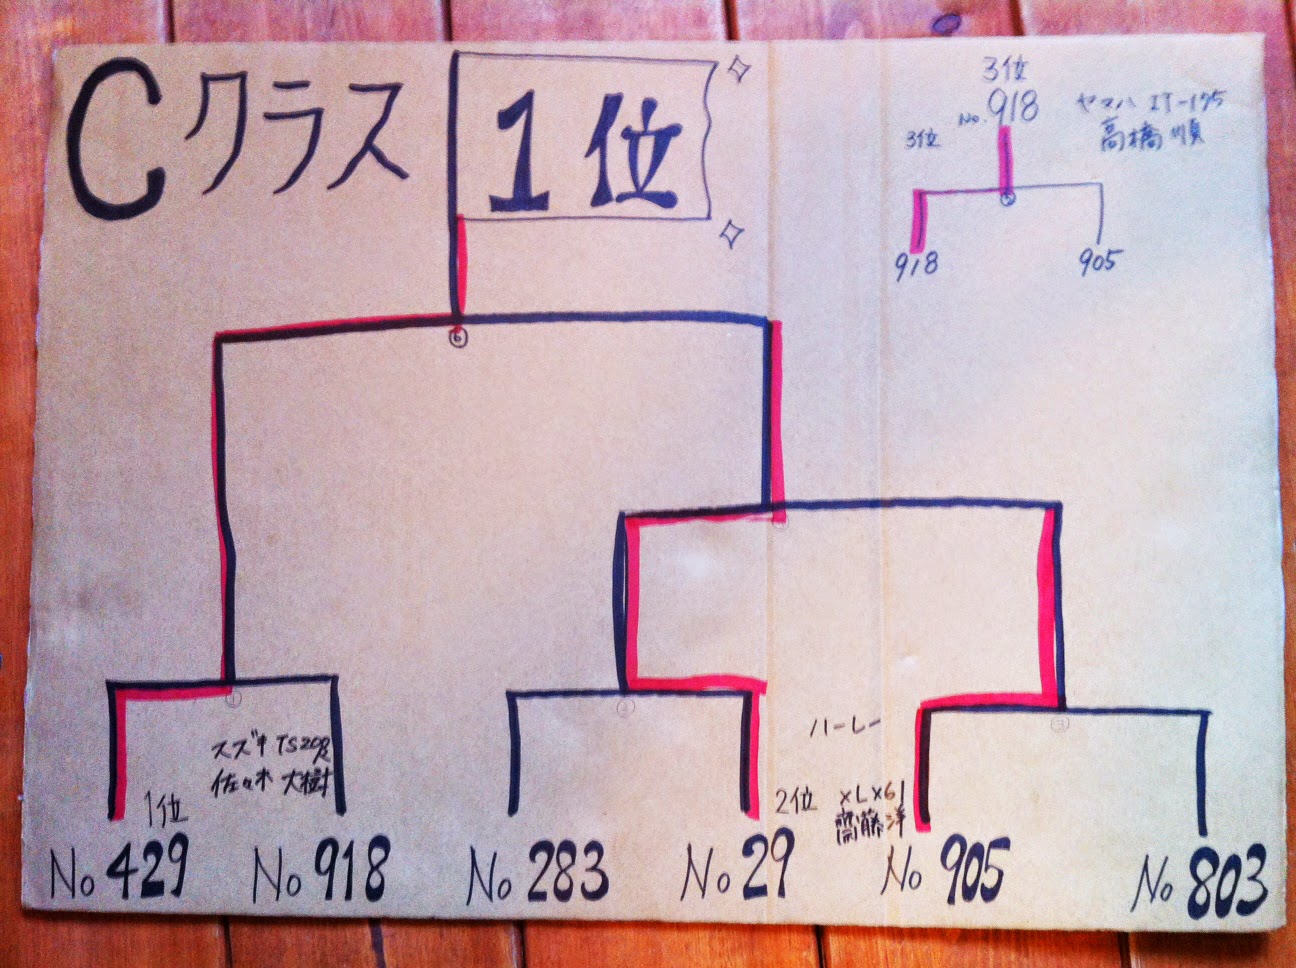 Cクラス
1位
3位
No.918
ヤマハ IT-175
高橋 順
3位
918
905
⑥
スズキ TS200R
佐々木 大樹
1位
ハーレー
2位
XLX61
齋藤 洋
No 429
No 918
No 283
No 29
No 905
No 803